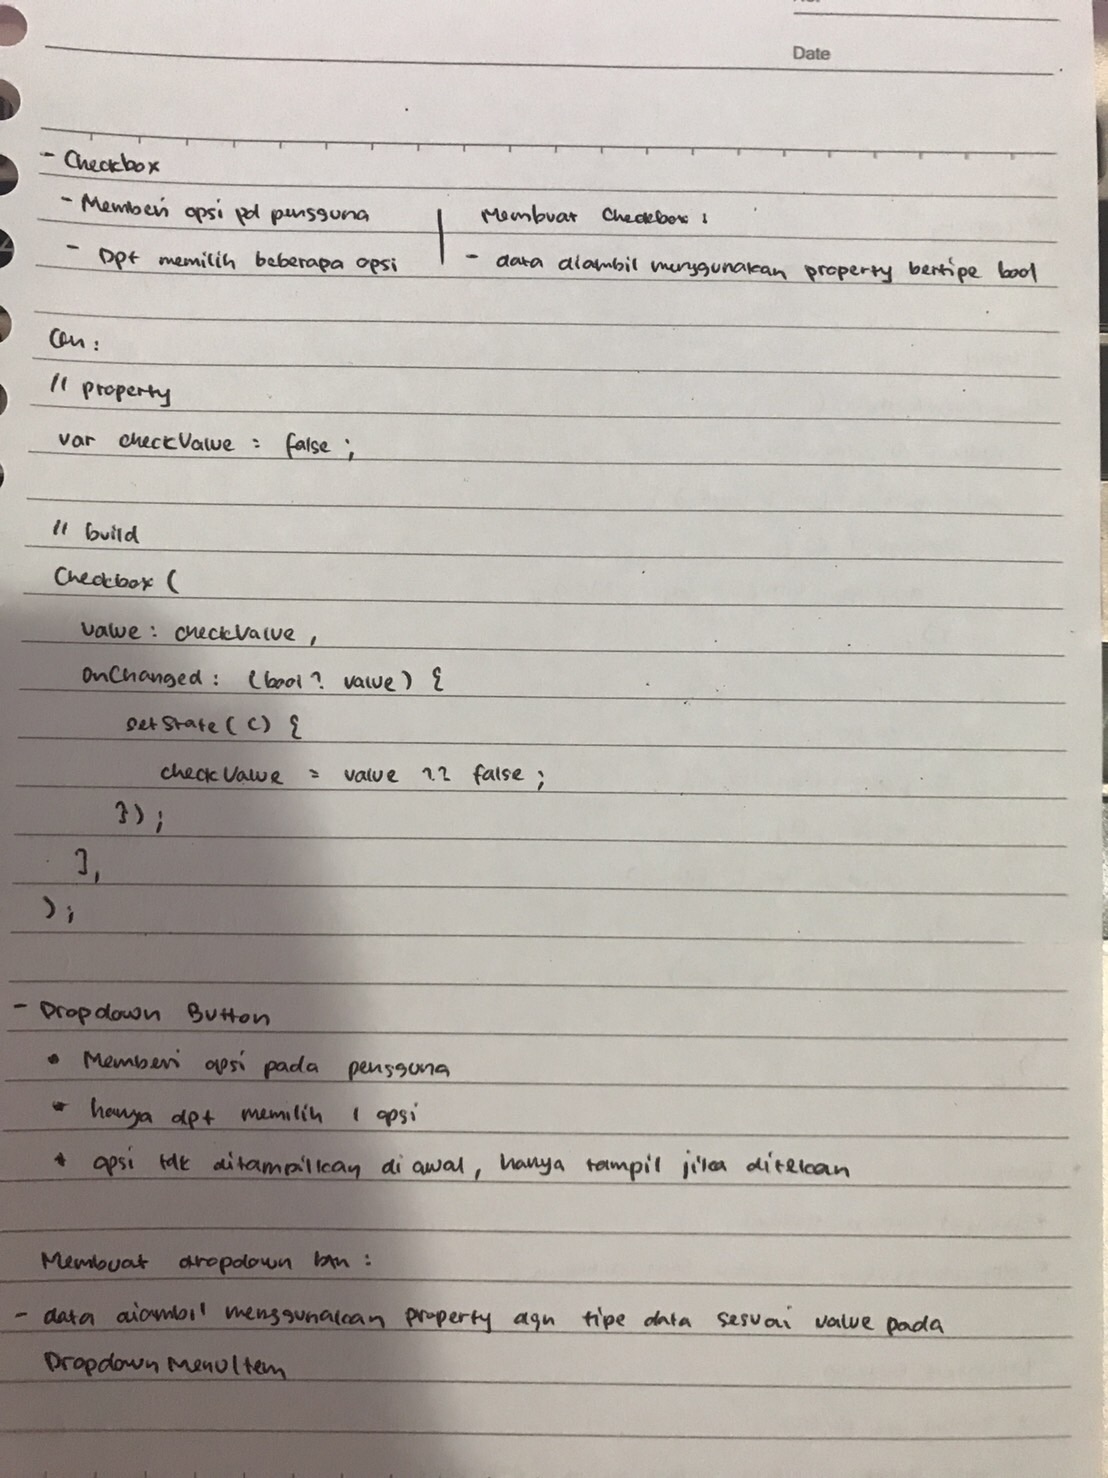 Date
- Checkbox
- Memberi opsi pd pengguna
- Dpt memilih beberapa opsi
Membuat Checkbox :
- data diambil menggunakan property bertipe bool
Con :
// property
var checkValue = false ;
// build
Checkbox (
value : checkValue ,
onChanged : (bool ? value) {
setState ( () {
checkValue = value ?? false ;
}) ;
} ,
) ;
- Dropdown Button
• Memberi opsi pada pengguna
• hanya dpt memilih 1 opsi
• opsi tdk ditampilkan di awal, hanya tampil jika ditekan
Membuat dropdown btn :
- data diambil menggunakan property dgn tipe data sesuai value pada
DropdownMenuItem